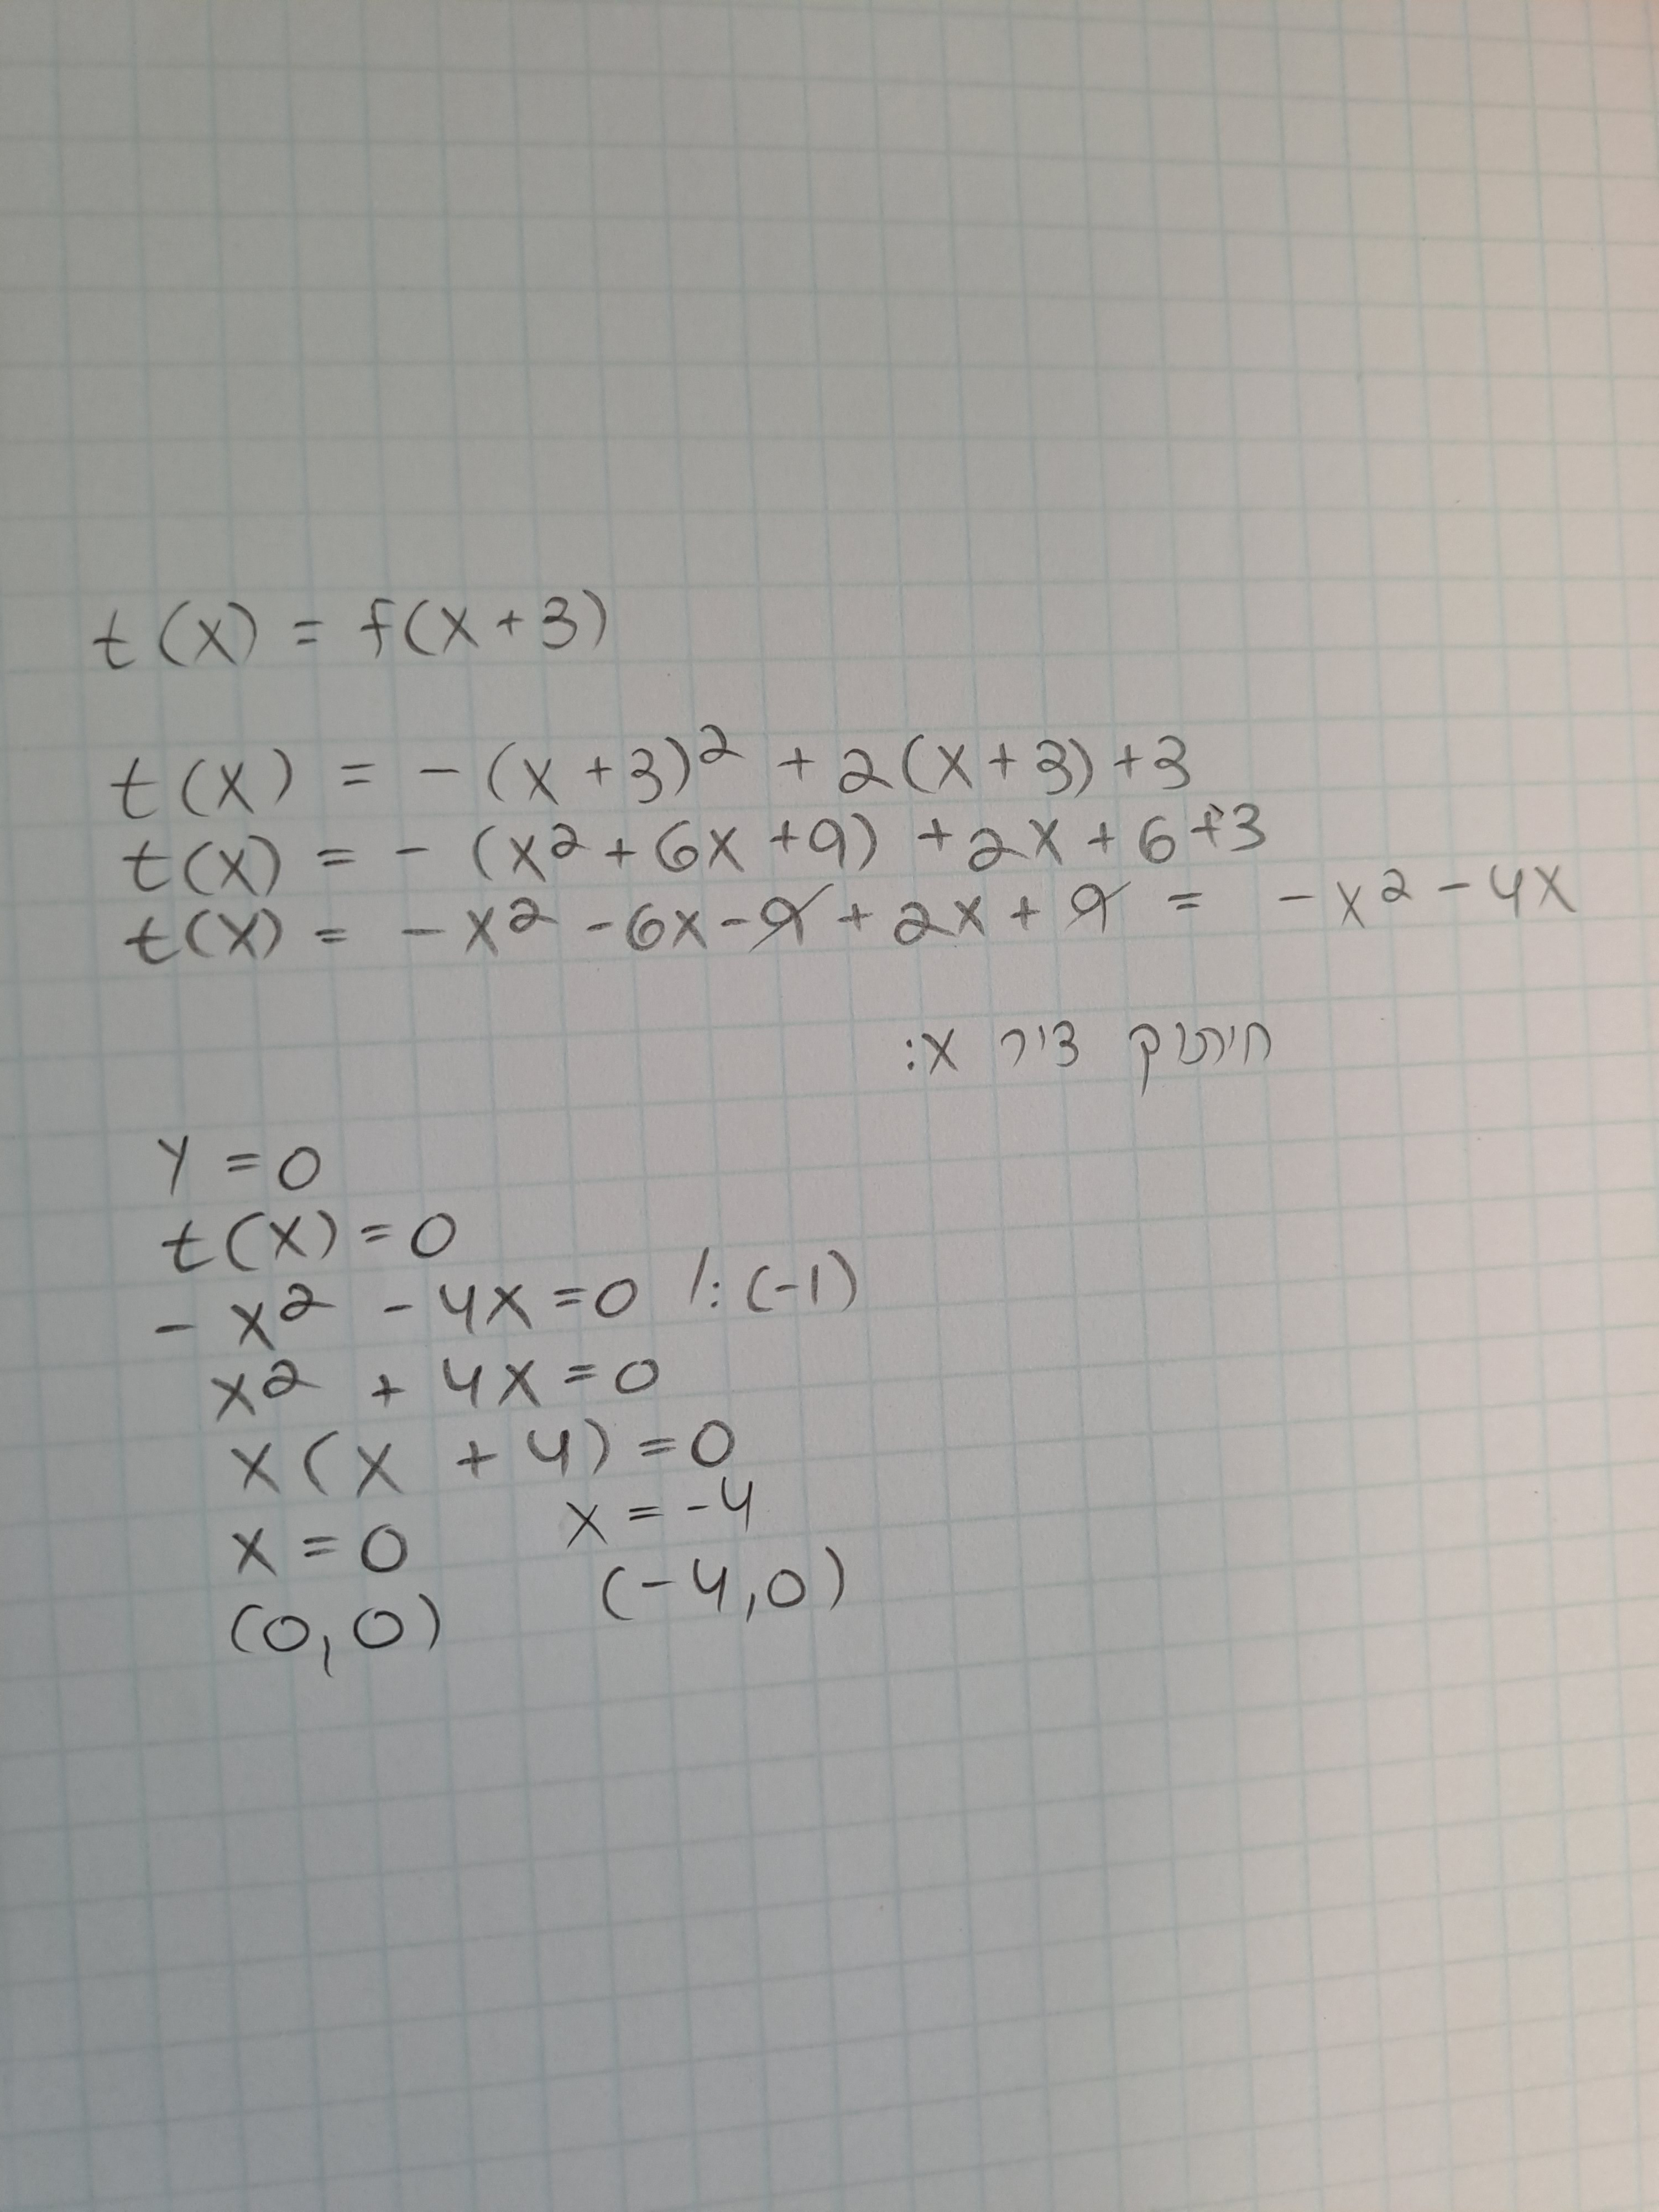 t(x) = f(x+3)
t(x) = -(x+3)² + 2(x+3)+3
t(x) = -(x²+6x+9) +2x+6+3
t(x) = -x² -6x-9+2x+9 = -x²-4x
חיתוק ציר x:
y=0
t(x)=0
-x² -4x=0 /:(-1)
x² + 4x=0
x(x +4)=0
x=0 x=-4
(0,0) (-4,0)